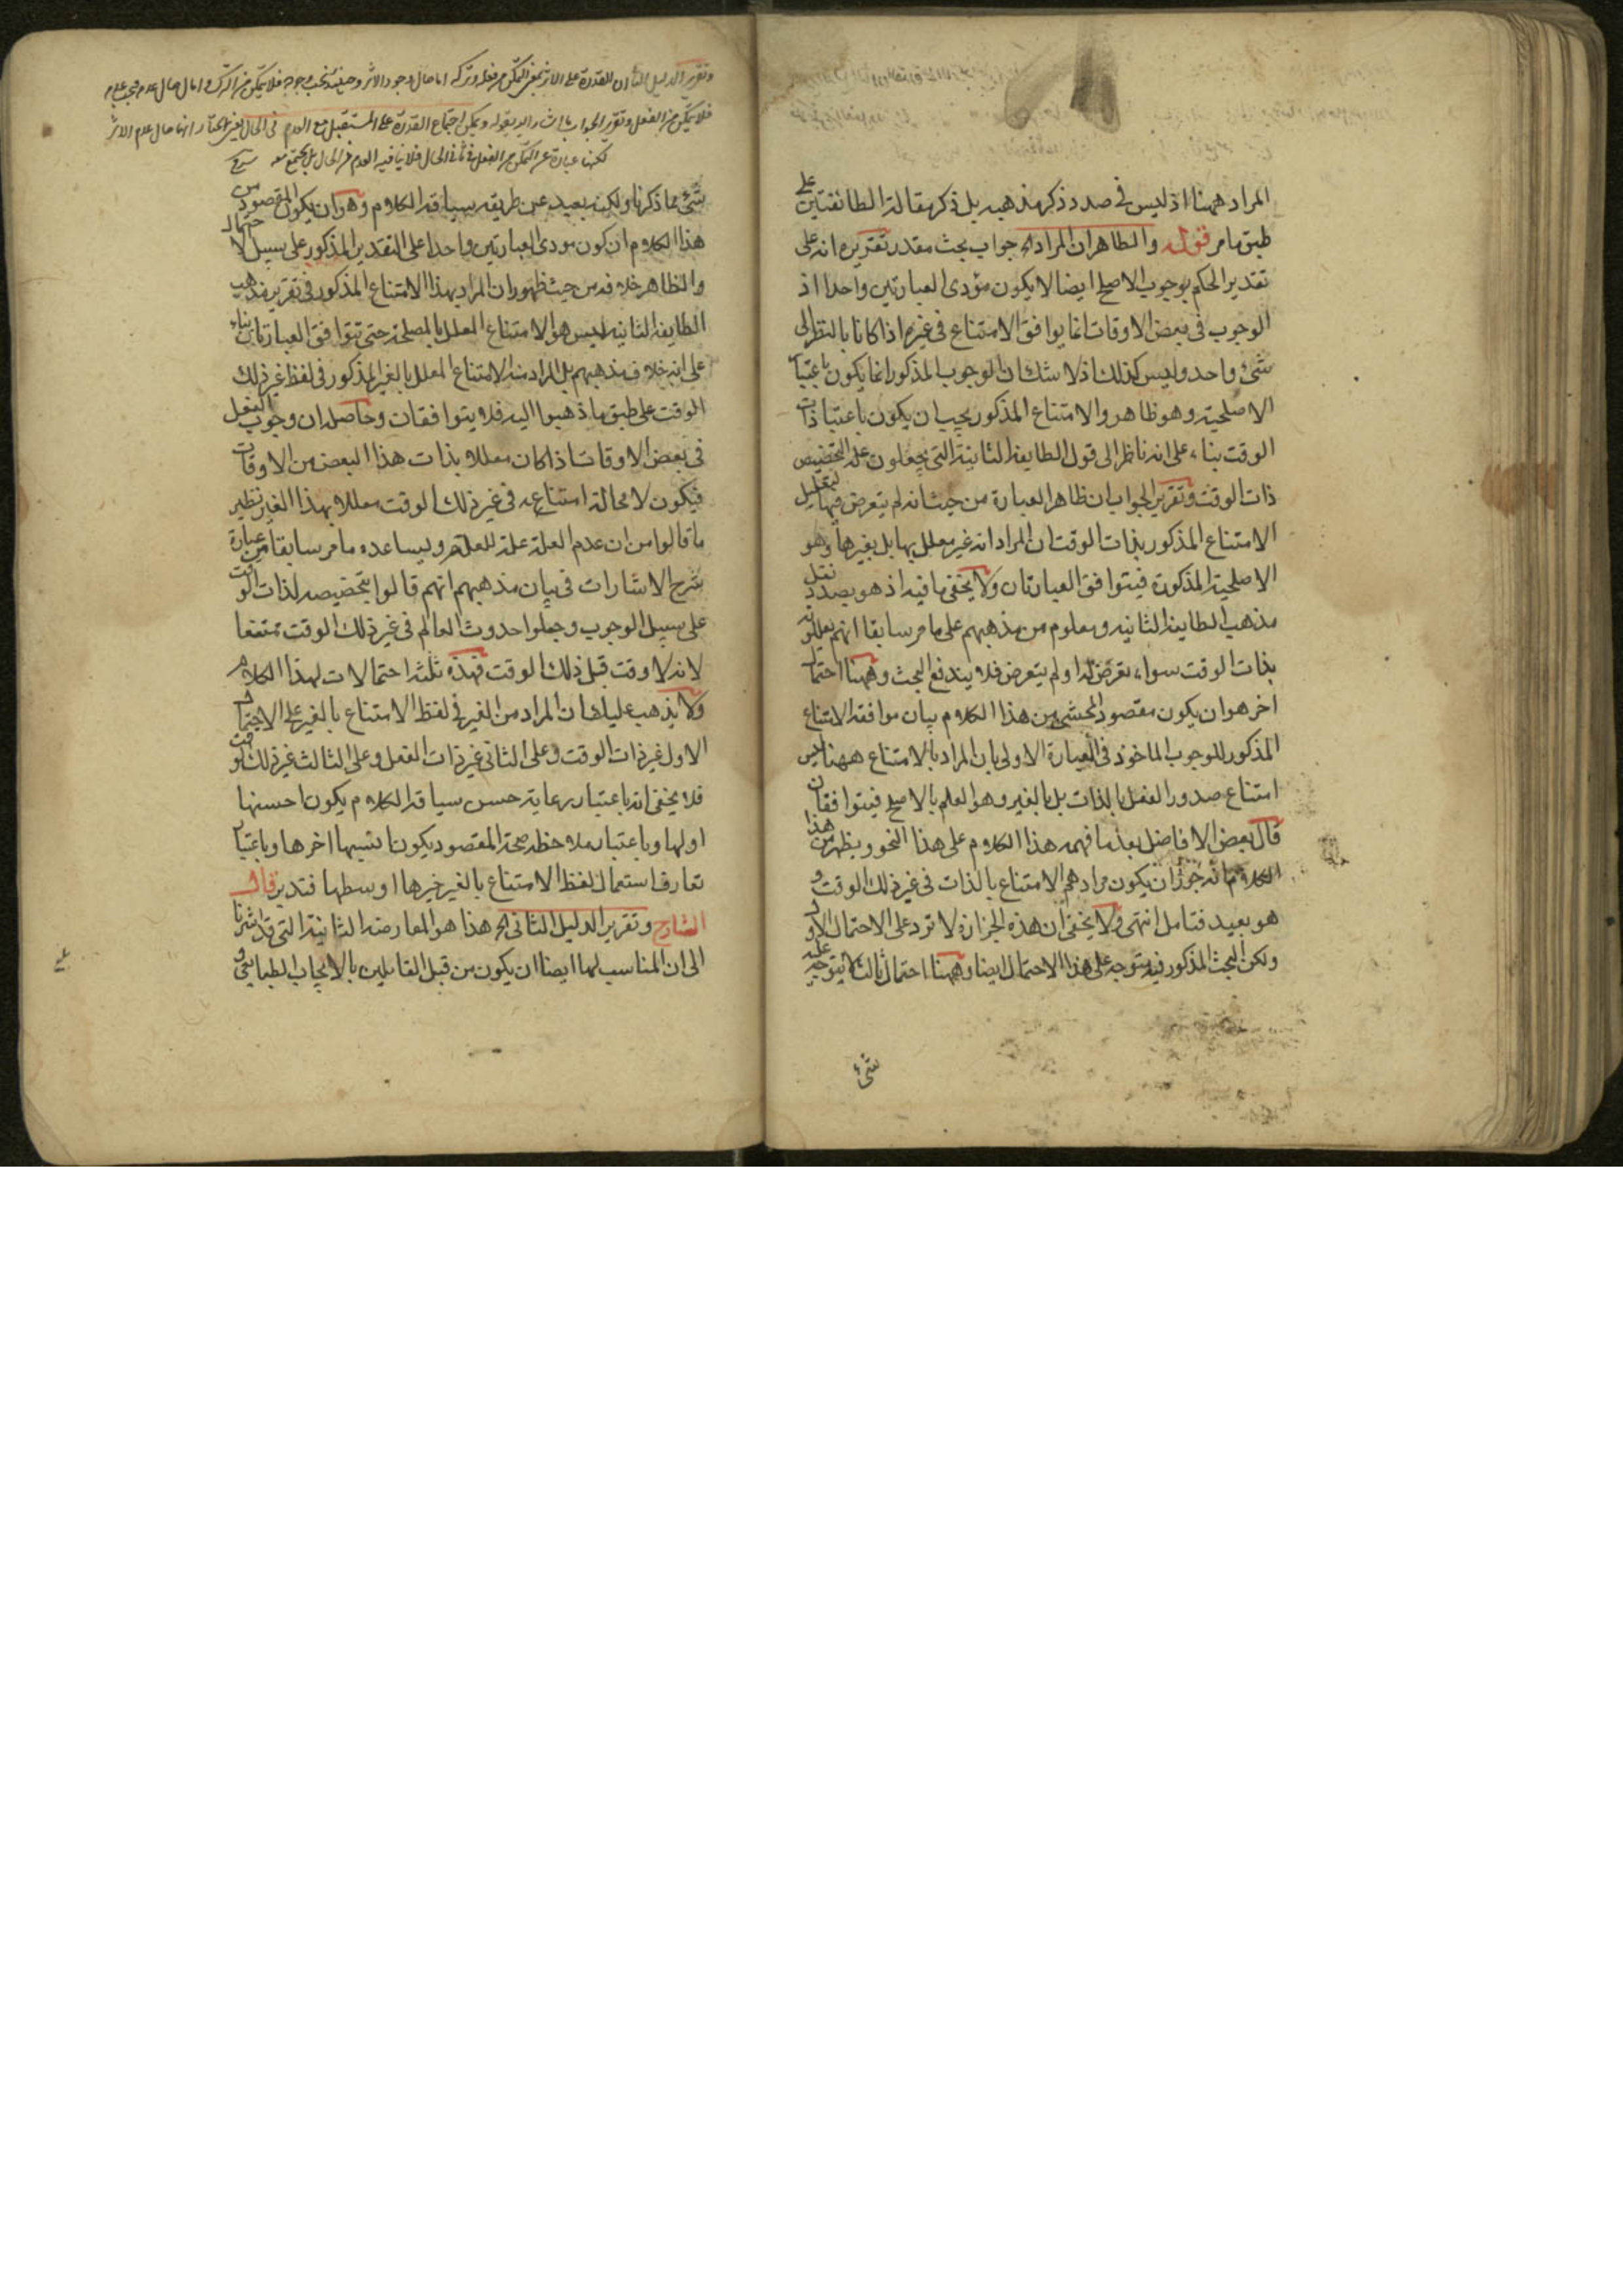 المراد ههنا اذ ليس فى صدد ذكر مذهبه بل ذكر مقالة الطائفتين على
طبق ما مر قوله والظاهر ان المراد اه جواب بحث مقدر تقريره انه على
تقدير الحكم بوجوب الاصلح ايضا لا يكون مؤدى العبارتين واحدا اذ
الوجوب فى بعض الاوقات انما يوافق الامتناع فى غيره اذا كانا بالنظر الى
شئ واحد وليس كذلك اذ لا شك ان الوجوب المذكور انما يكون باعتبار
الاصلحية وهو ظاهر والامتناع المذكور يجب ان يكون باعتبار ذات
الوقت بناء على انه ناظر الى قول الطايفة الثانية التى يجعلون علة التخصيص
ذات الوقت وتقرير الجواب ان ظاهر العبارة من حيث انه لم يتعرض فيها لتعليل
الامتناع المذكور بذات الوقت ان المراد انه غير معلل بها بل بغيرها وهو
الاصلحية المذكورة فيتوافق العبارتان ولا يخفى ما فيه اذ هو بصدد نقل
مذهب الطايفة الثانية ومعلوم من مذهبهم على ما مر سابقا انهم يعللونه
بذات الوقت سواء تعرض له او لم يتعرض فلا يندفع البحث وههنا احتمال
اخر هو ان يكون مقصود المحشى من هذا الكلام بيان موافقة الامتناع
المذكور للوجوب الماخوذ فى العبارة الاولى بان المراد بالامتناع ههنا ليس
امتناع صدور الفعل بالذات بل بالغير وهو العلم بالاصلح فيتوافقان
قال بعض الافاضل بعد ما فهمه هذا الكلام على هذا النحو ويظهر من هذا
الكلام انه جوز ان يكون مرادهم الامتناع بالذات فى غير ذلك الوقت و
هو بعيد فتامل انتهى ولا يخفى ان هذه الحزازة لا ترد على الاحتمال الاول
ولكن البحث المذكور فيه متوجه على هذا الاحتمال ايضا وههنا احتمال ثالث لا يتوجه عليه
شئ
وتقرير الدليل الثانى ان القدرة على الاثر بمعنى التمكن من فعله وتركه اما حال وجود الاثر وحينئذ يجب وجوده فلا يتمكن من الترك واما حال عدمه فيجب عدمه
فلا يتمكن من الفعل وتقرير الجواب ما اشار اليه بقوله ويمكن اجتماع القدرة على المستقبل مع العدم فى الحال يعنى نختار انها حال عدم الاثر
لكنها عبارة عن التمكن من الفعل فى ثانى الحال فلا ينافيه العدم فى الحال بل يجتمع معه
شئ مما ذكرنا ولكنه بعيد عن طريقة سياقة الكلام وهو ان يكون المقصود من
هذا الكلام ان كون مودى العبارتين واحدا على التقدير المذكور على سبيل الاحتمال
والظاهر خلافه من حيث ظهور ان المراد بهذا الامتناع المذكور فى تقرير مذهب
الطايفة الثانية ليس هو الامتناع المعلل بالمصلحة حتى تتوافق العبارتان بناء
على انه خلاف مذهبهم بل المراد منه الامتناع المعلل بالغير المذكور فى لفظ غير ذلك
الوقت على طبق ما ذهبوا اليه فلا يتوافقان وحاصله ان وجوب الفعل
فى بعض الاوقات اذا كان معللا بذات هذا البعض من الاوقات
فيكون لا محالة امتناعه فى غير ذلك الوقت معللا بهذا الغير نظير
ما قالوا من ان عدم العلة علة للعدم ويساعده ما مر سابقا من عبارة
شرح الاشارات فى بيان مذهبهم انهم قالوا بتخصيصه لذات الوقت
على سبيل الوجوب وجعلوا حدوث العالم فى غير ذلك الوقت ممتنعا
لانه لا وقت قبل ذلك الوقت فهذه ثلثة احتمالات لهذا الكلام
ولا يذهب عليك ان المراد من الغير فى لفظ الامتناع بالغير على الاحتمال
الاول غير ذات الوقت وعلى الثانى غير ذات الفعل وعلى الثالث غير ذلك الوقت
فلا يخفى انه باعتبار رعاية حسن سياقة الكلام يكون احسنها
اولها وباعتبار ملاحظة صحة المقصود يكون انسبها اخرها وباعتبار
تعارف استعمال لفظ الامتناع بالغير خيرها اوسطها فتدبر قال
الشارح وتقرير الدليل الثانى اه هذا هو المعارضة الثانية التى قد اشرنا
الى ان المناسب لها ايضا ان يكون من قبل القايلين بالايجاب لطباعى و